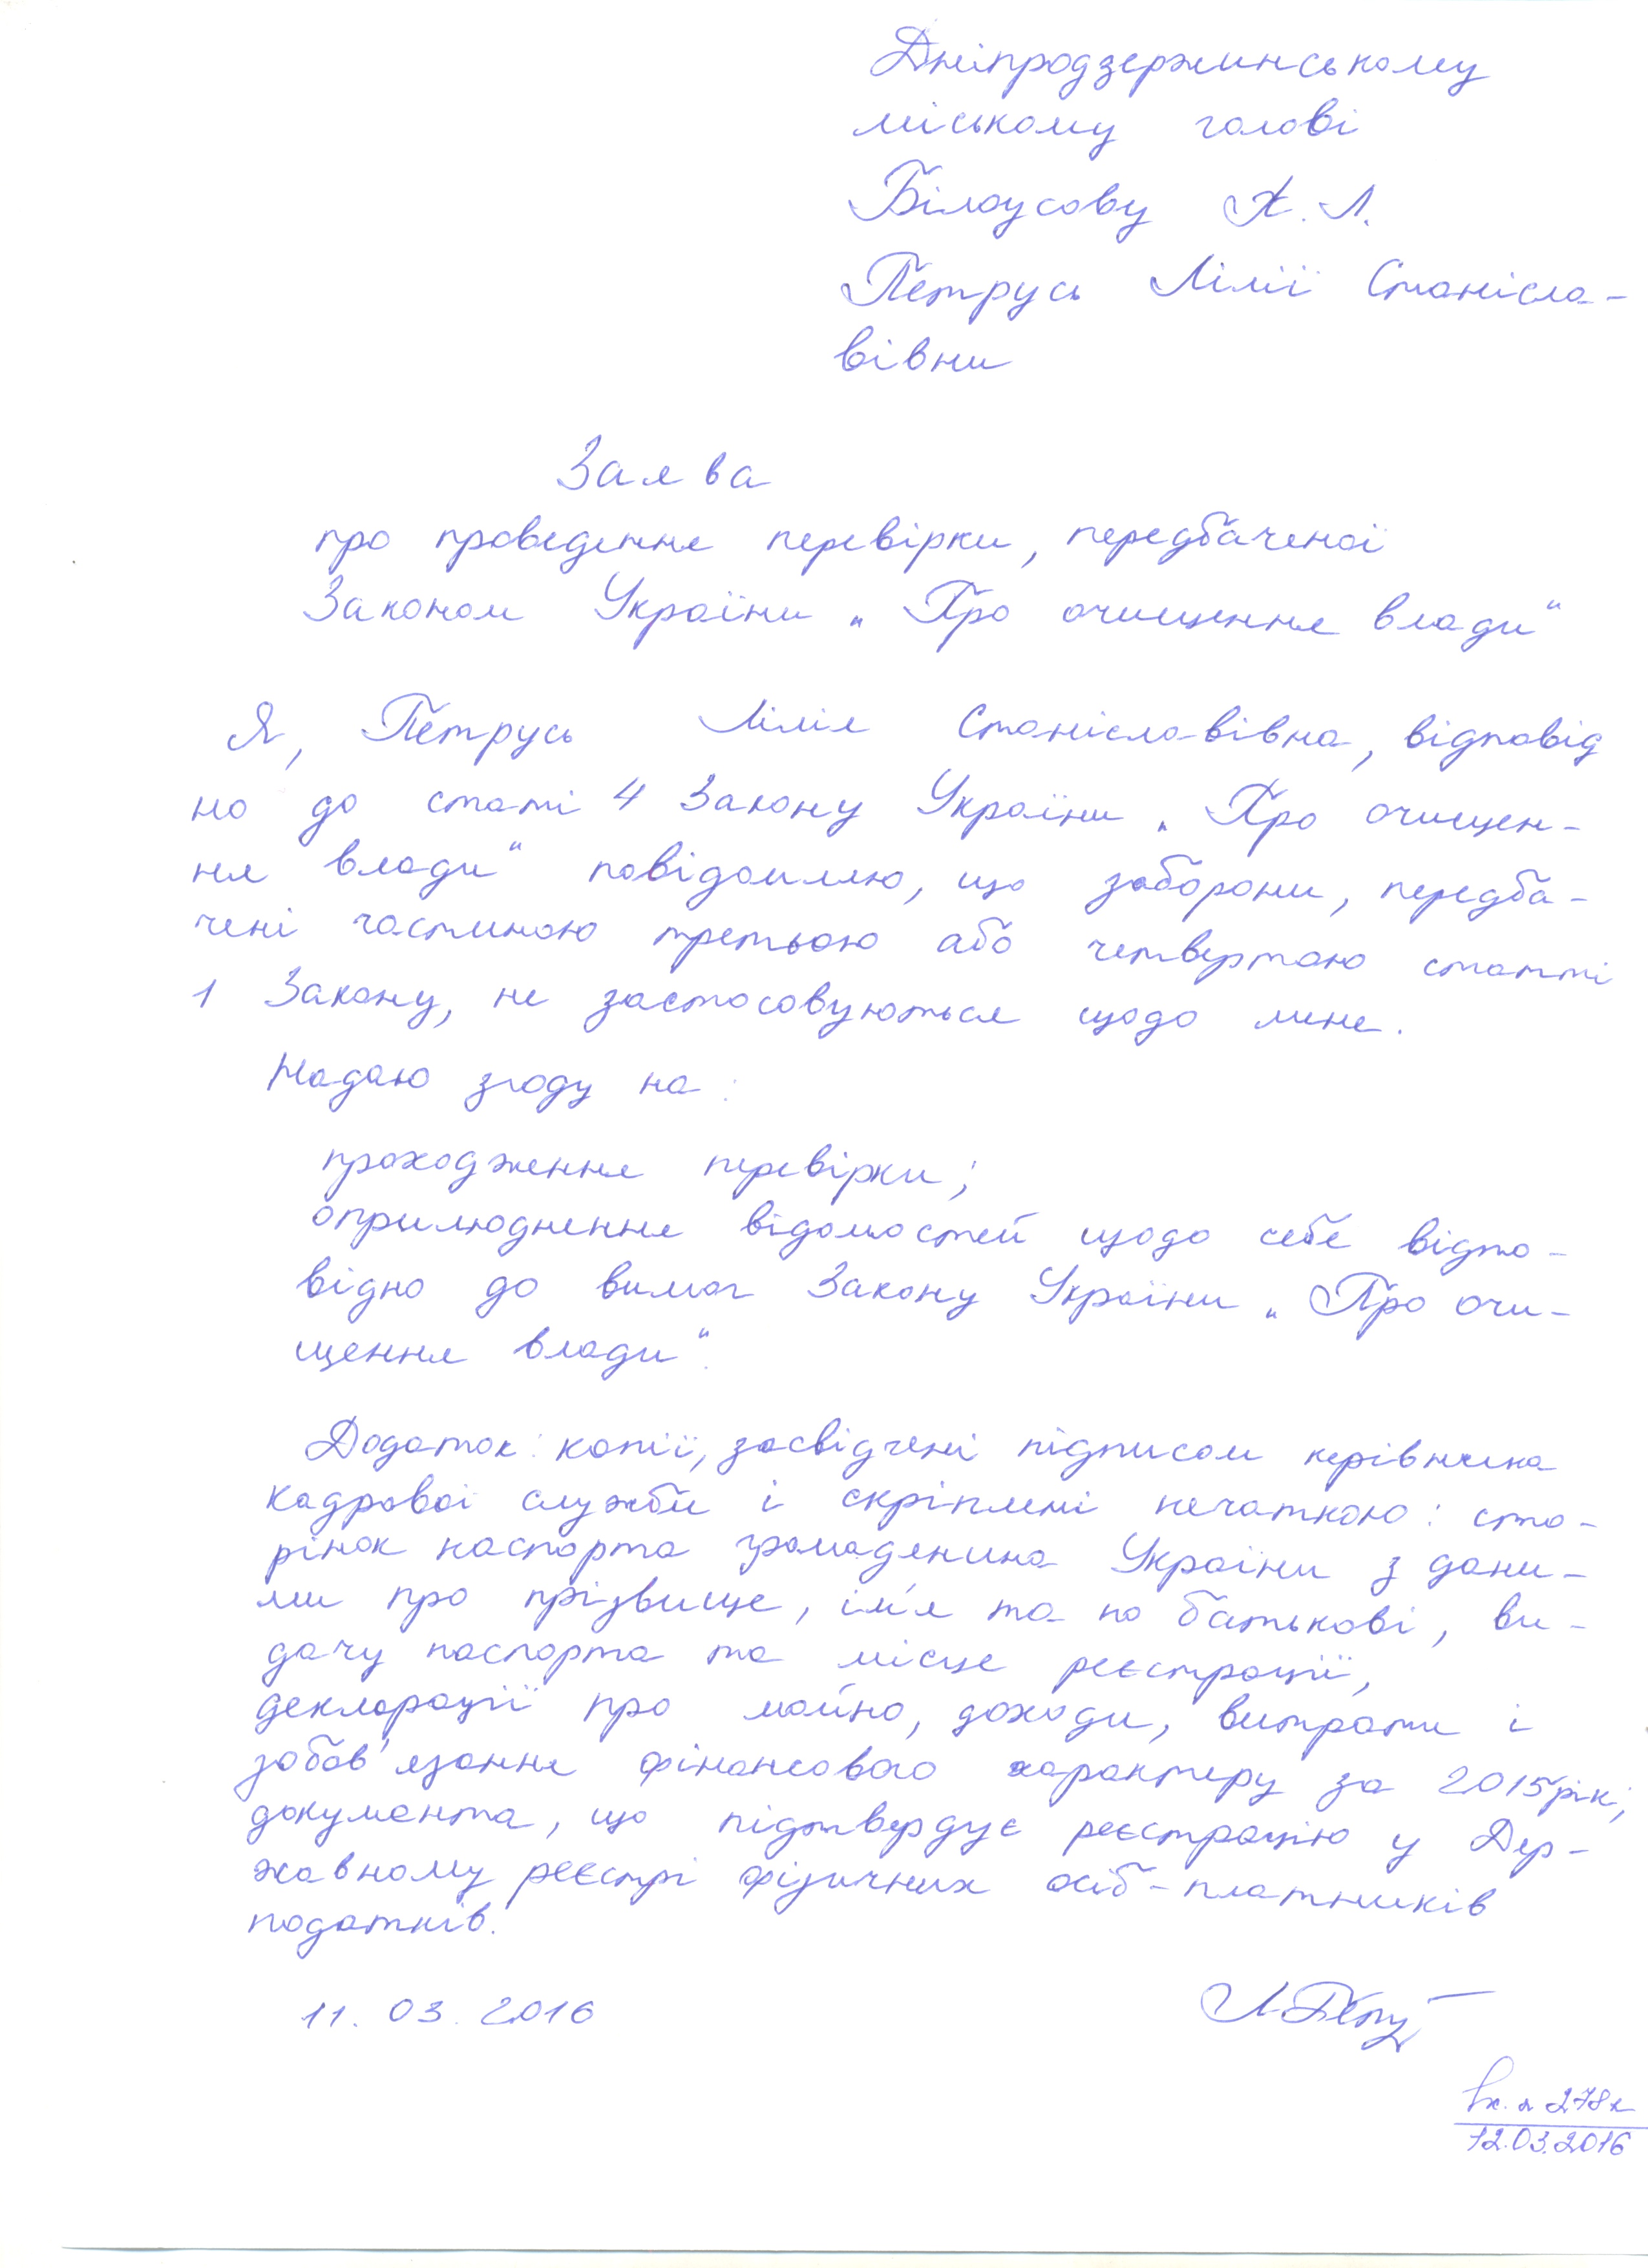 Дніпродзержинському
міському голові
Білоусову К. Л.
Петрусь Лілії Станісла-
вівни
Заява
про проведення перевірки, передбаченої
Законом України „Про очищення влади“
Я, Петрусь Лілія Станіславівна, відповід
но до статі 4 Закону України „Про очищен-
ня влади“ повідомляю, що заборони, передба-
чені частиною третьою або четвертою статті
1 Закону, не застосовуються щодо мене.
Надаю згоду на:
проходження перевірки;
оприлюднення відомостей щодо себе відпо-
відно до вимог Закону України „Про очи-
щення влади“.
Додаток: копії, засвідчені підписом керівника
кадрової служби і скріплені печаткою: сто-
рінок паспорта громадянина України з дани-
ми про прізвище, ім'я та по батькові, ви-
дачу паспорта та місце реєстрації,
декларації про майно, доходи, витрати і
зобов'язання фінансового характеру за 2015 рік;
документа, що підтверджує реєстрацію у Дер-
жавному реєстрі фізичних осіб-платників
податків.
11. 03. 2016
Л. Петр
вх. № 278к
12.03.2016